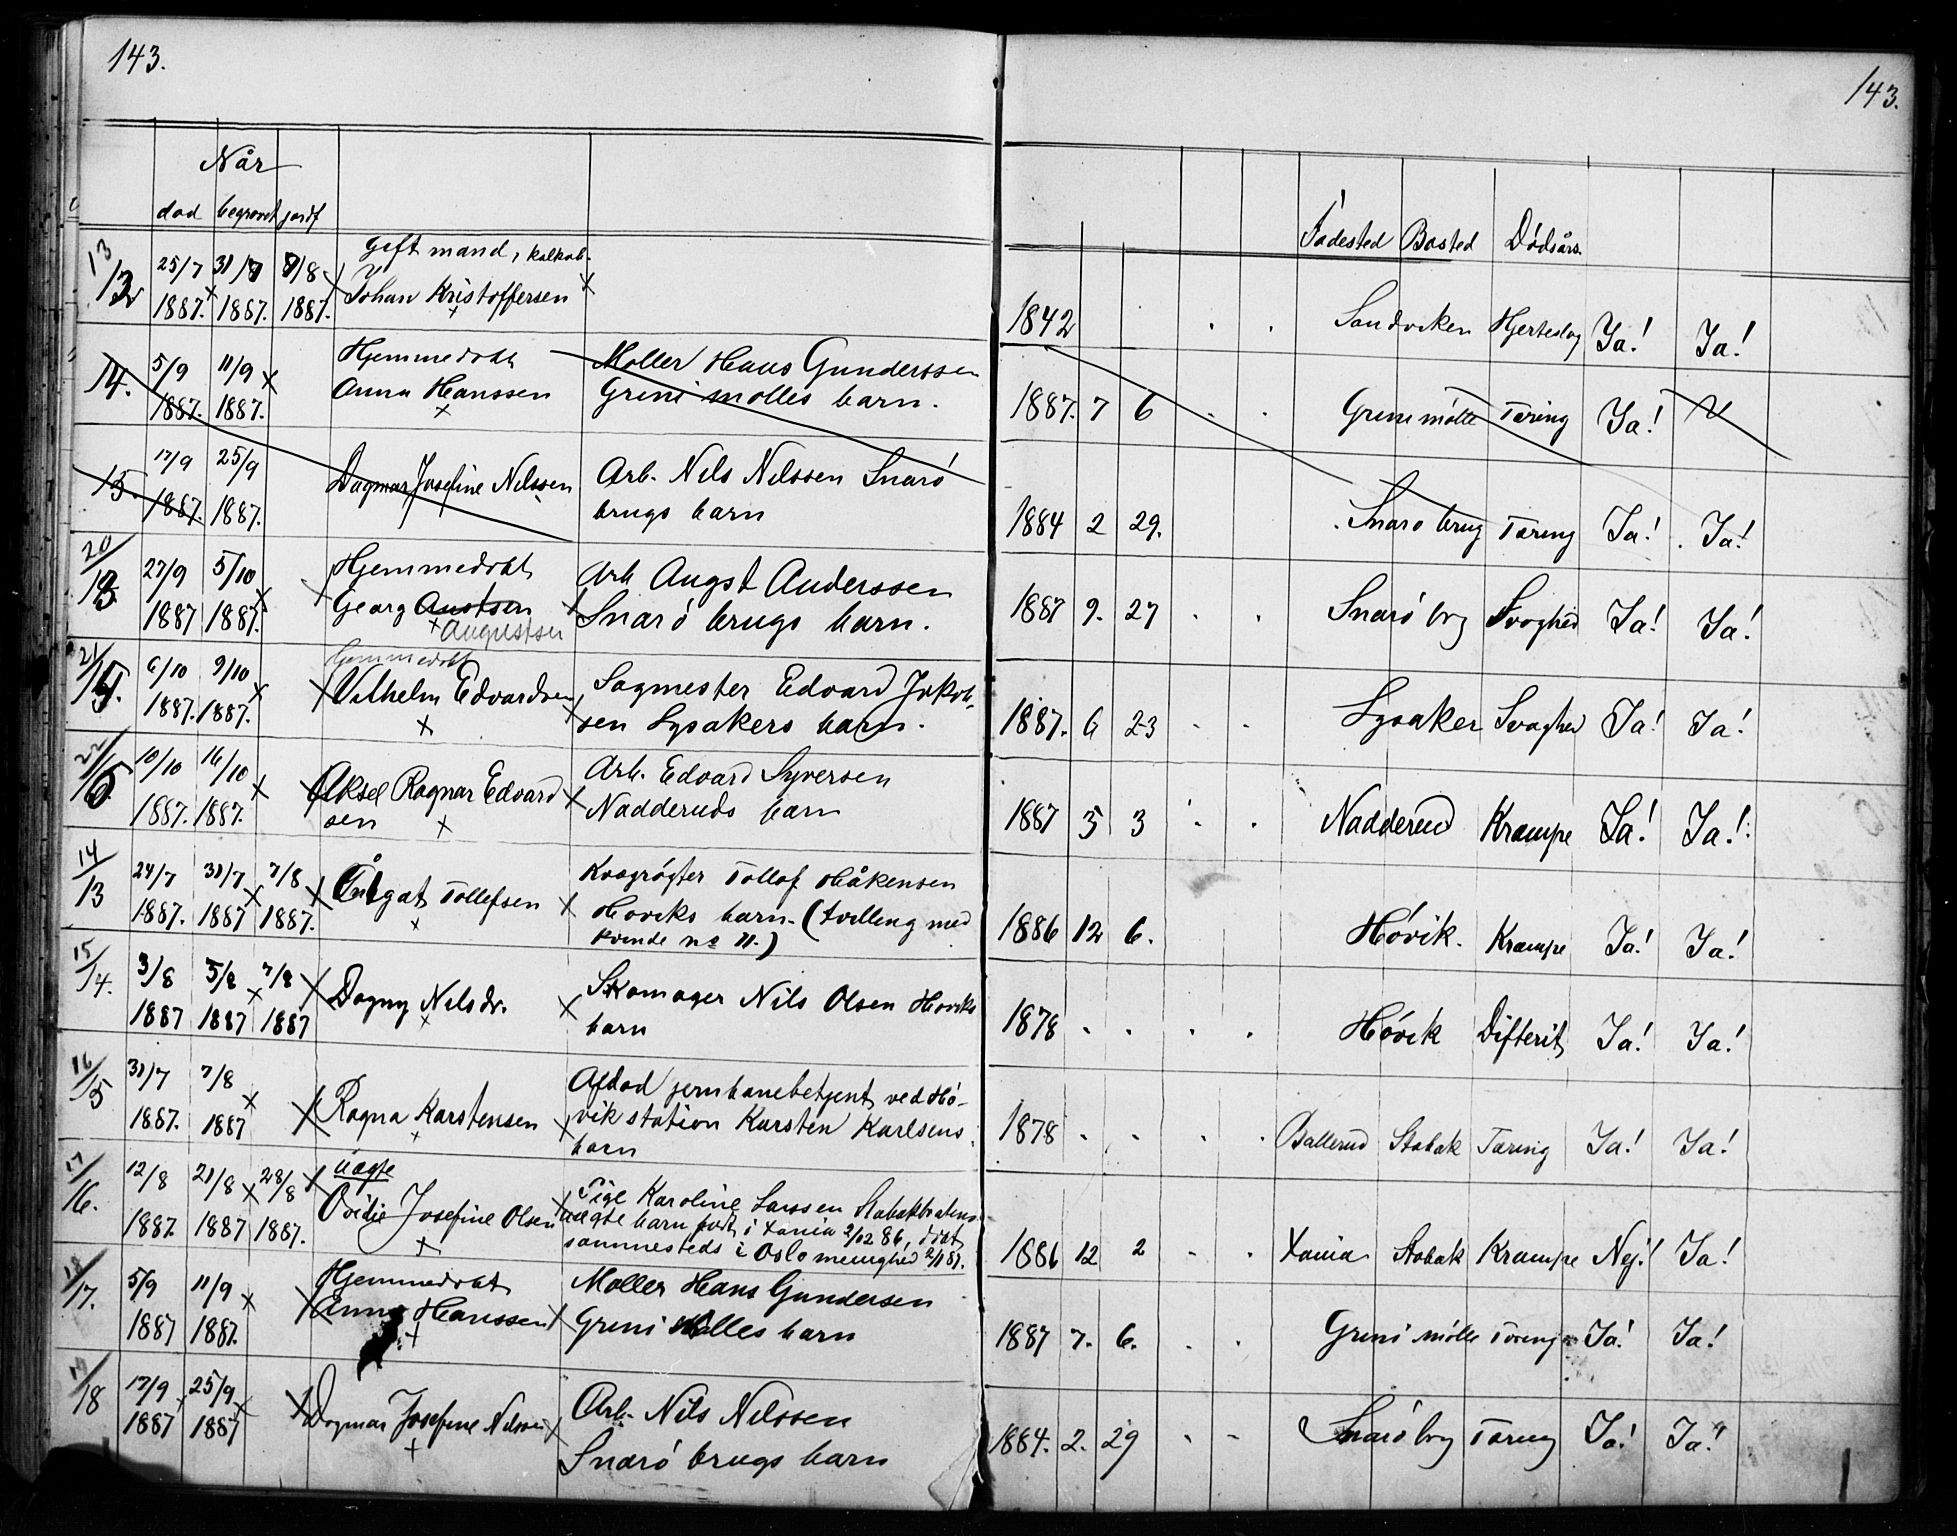 143.
143.
Når
død begravet jordf
Fødested Bosted Dødsårs.
13/12 25/7 31/7 7/8 Gift mand, kalkab.
1887. 1887. 1887. Johan Kristoffersen
1842 . . Sandviken Hjerteslag Ja! Ja!
14. 5/9 11/9 Hjemmedøbt Møller Hans Gunderssen
1887. 1887. Anna Hanssen Grini mølles barn.
1887. 7 6 . . Grini mølle Tæring Ja!
15. 17/9 25/9 Dagmar Josefine Nilssen Arb. Nils Nilssen Snarø
1887. 1887. brugs barn
1884 2 29. Snarø brug Tæring Ja! Ja!
20/13 27/9 5/10 Hjemmedøbt Arb Augst Anderssen
1887 1887. Georg Austsen Snarø brugs barn.
Augustsen
1887 9. 27 . . Snarø brg Svaghed Ja! Ja!
21/ 6/10 9/10 Hjemmedøbt
1887. 1887. Vilhelm Edvardsen Sagmester Edvard Jakob-
sen Lysakers barn.
1887. 6 23 . . Lysaker Svaghed Ja! Ja!
22/ 10/10 16/10 Aksel Ragnar Edvard Arb. Edvard Syversen
1887. 1887. sen Nadderuds barn
1887 5 3 . . Nadderud Krampe Ja! Ja!
14/13 24/7 31/7 7/8 Tollefsen Kvægrøgter Tollof Håkensen
1887. 1887 1887. Høviks barn. (tvilling med
kvinde no 11.)
1886 12 6. Høvik. Krampe Ja! Ja!
15/14. 3/8 5/8 7/8 Dagny Nilsdr. Skomager Nils Olsen Høviks
1887 1887 1887 barn
1878 . . . . Høvik Difterit Ja! Ja!
16/15 31/7 7/8 Afdød jernbanebetjent ved Hø-
1887. 1887 Ragna Karstensen vik station Karsten Karlsens
barn
1878 . . . . Ballerud Stabæk Tæring Ja! Ja!
17/16. 12/8 21/8 28/8 uægte Pige Karoline Larssen Stabækbratens
1887. 1887 1887. Ovidie Josefine Olsen uægte barn født i Xania 2/12 86, døbt
sammesteds i Oslo menighed 2/1 87.
1886 12 2 . . Xania Stabæk Krampe Nej! Ja!
18/17. 5/9 11/9 Hjemmedøbt Møller Hans Gundersen
1887 1887. Anna Hanssen Grini Mølles barn
1887 7. 6. . . Grini mølle Tæring Ja! Ja!
19/18 17/9 25/9 Dagmar Josefine Nilssen Arb. Nils Nilssen
1887 1887 Snarø brugs barn
1884. 2. 29 . . Snarø brg Tæring Ja! Ja!